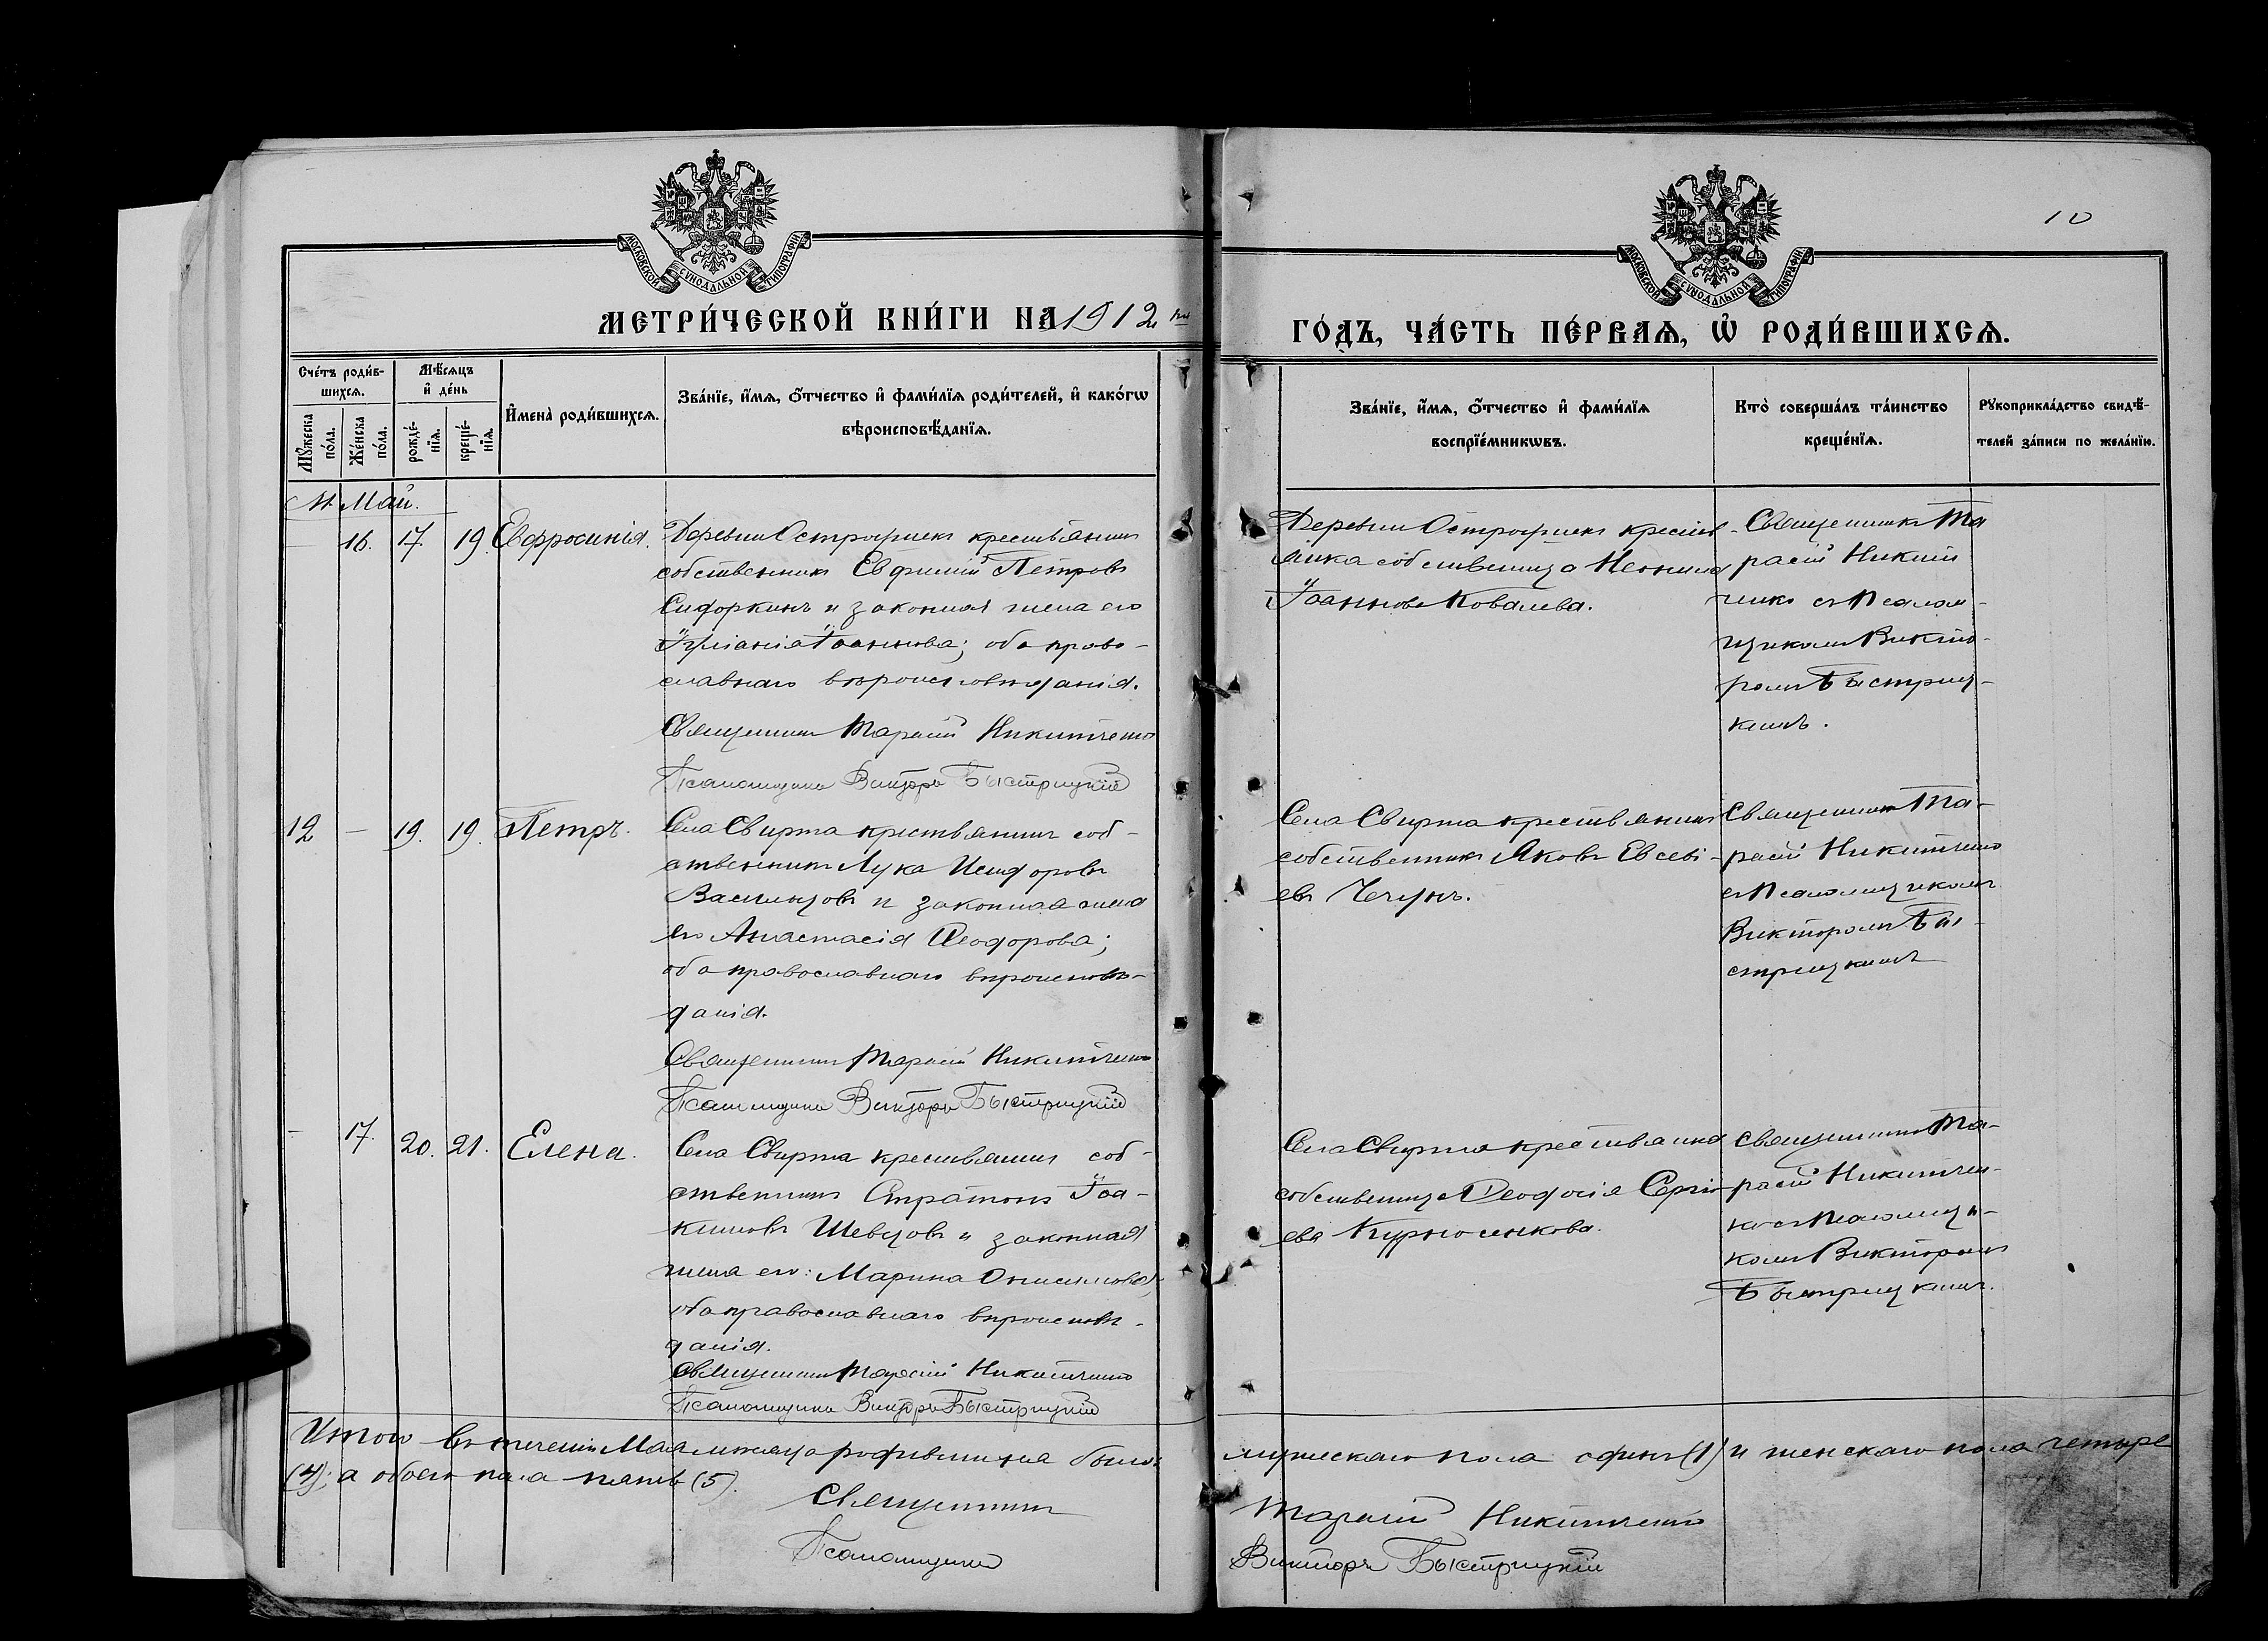 10
МОСКОВСКОЙ СѴНОДАЛЬНОЙ ТИПОГРАФІИ
МОСКОВСКОЙ СѴНОДАЛЬНОЙ ТИПОГРАФІИ
МЕТРИ́ЧЕСКОЙ КНИ́ГИ НА 1912 й
ГО́ДЪ, ЧА́СТЬ ПЕ́РВАѦ, Ѡ҆ РОДИ́ВШИХСѦ.
Сче́тъ роди́в-
шихсѧ.
Мꙋ́жеска
по́ла.
Же́нска
по́ла.
Мѣ́сѧцъ
и҆ де́нь
рожде́-
нїѧ.
креще́-
нїѧ.
И҆мена̀ роди́вшихсѧ.
Зва́нїе, и҆́мѧ, ѻ҆́тчество и҆ фами́лїѧ роди́телей, и҆ како́гѡ
вѣроисповѣ́данїѧ.
Зва́нїе, и҆́мѧ, ѻ҆́тчество и҆ фами́лїѧ
воспрїе́мникѡвъ.
Кто̀ соверша́лъ та́инство
креще́нїѧ.
Рꙋкоприкла́дство свидѣ́-
телей за́писи по жела́нїю.
М. Май.
— 16. 17. 19. Евфросинія.
Деревни Острогляды крестьянинъ
собственникъ Евфимій Петровъ
Сидоркинъ и законная жена его
Іуліанія Іоаннова; оба право-
славнаго вѣроисповѣданія.
Священникъ Тарасій Никитченко
Псаломщикъ Викторъ Быстрицкій
Деревни Острогляды крестья-
янка собственница Неонила
Іоаннова Ковалева.
Священникъ Та
расій Никит
ченко съ Псалом-
щикомъ Викто-
ромъ Быстриц-
кимъ.
12 — 19. 19. Петръ.
Села Свирта крестьянинъ соб-
ственникъ Лука Исидоровъ
Василицовъ и законная жена
его Анастасія Ѳеодорова;
оба православнаго вѣроисповѣ-
данія.
Священникъ Тарасій Никитченко
Псаломщикъ Викторъ Быстрицкій
Села Свирта крестьянинъ
собственникъ Яковъ Евсеві-
евъ
Священникъ Та-
расій Никитченко
съ Псаломщикомъ
Викторомъ Бы-
стрицкимъ
— 17. 20. 21. Елена.
Села Свирта крестьянинъ соб-
ственникъ Стратонъ Іоа-
кимовъ Шевцовъ и законная
жена его: Марина Онисимова;
оба православнаго вѣроисповѣ-
данія.
Священникъ Тарасій Никитченко
Псаломщикъ Викторъ Быстрицкій
Села Свирта крестьянка
собственница Ѳеодосія Сергі-
ева Курносенкова.
Священникъ Та-
расій Никитчен-
ко съ Псаломщи-
комъ Викторомъ
Быстрицкимъ.
Итого въ теченіи Мая мѣсяца родившихся было: мужескаго пола одинъ (1) и женскаго пола четыре
(4); а обоего пола пять (5).
Священникъ Тарасій Никитченко
Псаломщикъ Викторъ Быстрицкій